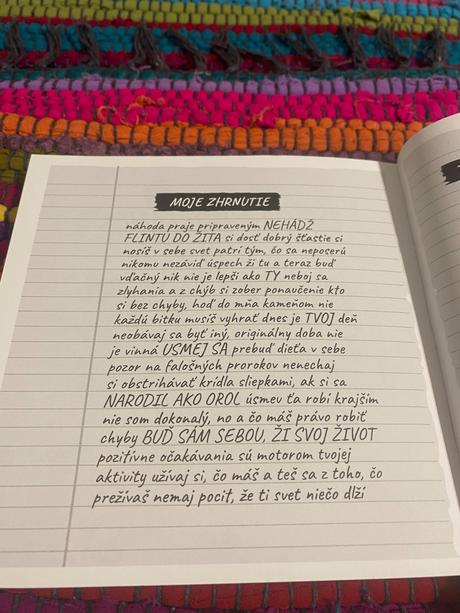 MOJE ZHRNUTIE
náhoda praje pripraveným NEHÁDŽ
FLINTU DO ŽITA si dosť dobrý šťastie si
nosíš v sebe svet patrí tým, čo sa neposerú
nikomu nezáviď úspech ži tu a teraz buď
vďačný nik nie je lepší ako TY neboj sa
zlyhania a z chýb si zober ponaučenie kto
si bez chyby, hoď do mňa kameňom nie
každú bitku musíš vyhrať dnes je TVOJ deň
neobávaj sa byť iný, originálny doba nie
je vinná USMEJ SA prebuď dieťa v sebe
pozor na falošných prorokov nenechaj
si obstrihávať krídla sliepkami, ak si sa
NARODIL AKO OROL úsmev ťa robí krajším
nie som dokonalý, no a čo máš právo robiť
chyby BUĎ SÁM SEBOU, ŽI SVOJ ŽIVOT
pozitívne očakávania sú motorom tvojej
aktivity užívaj si, čo máš a teš sa z toho, čo
prežívaš nemaj pocit, že ti svet niečo dlží